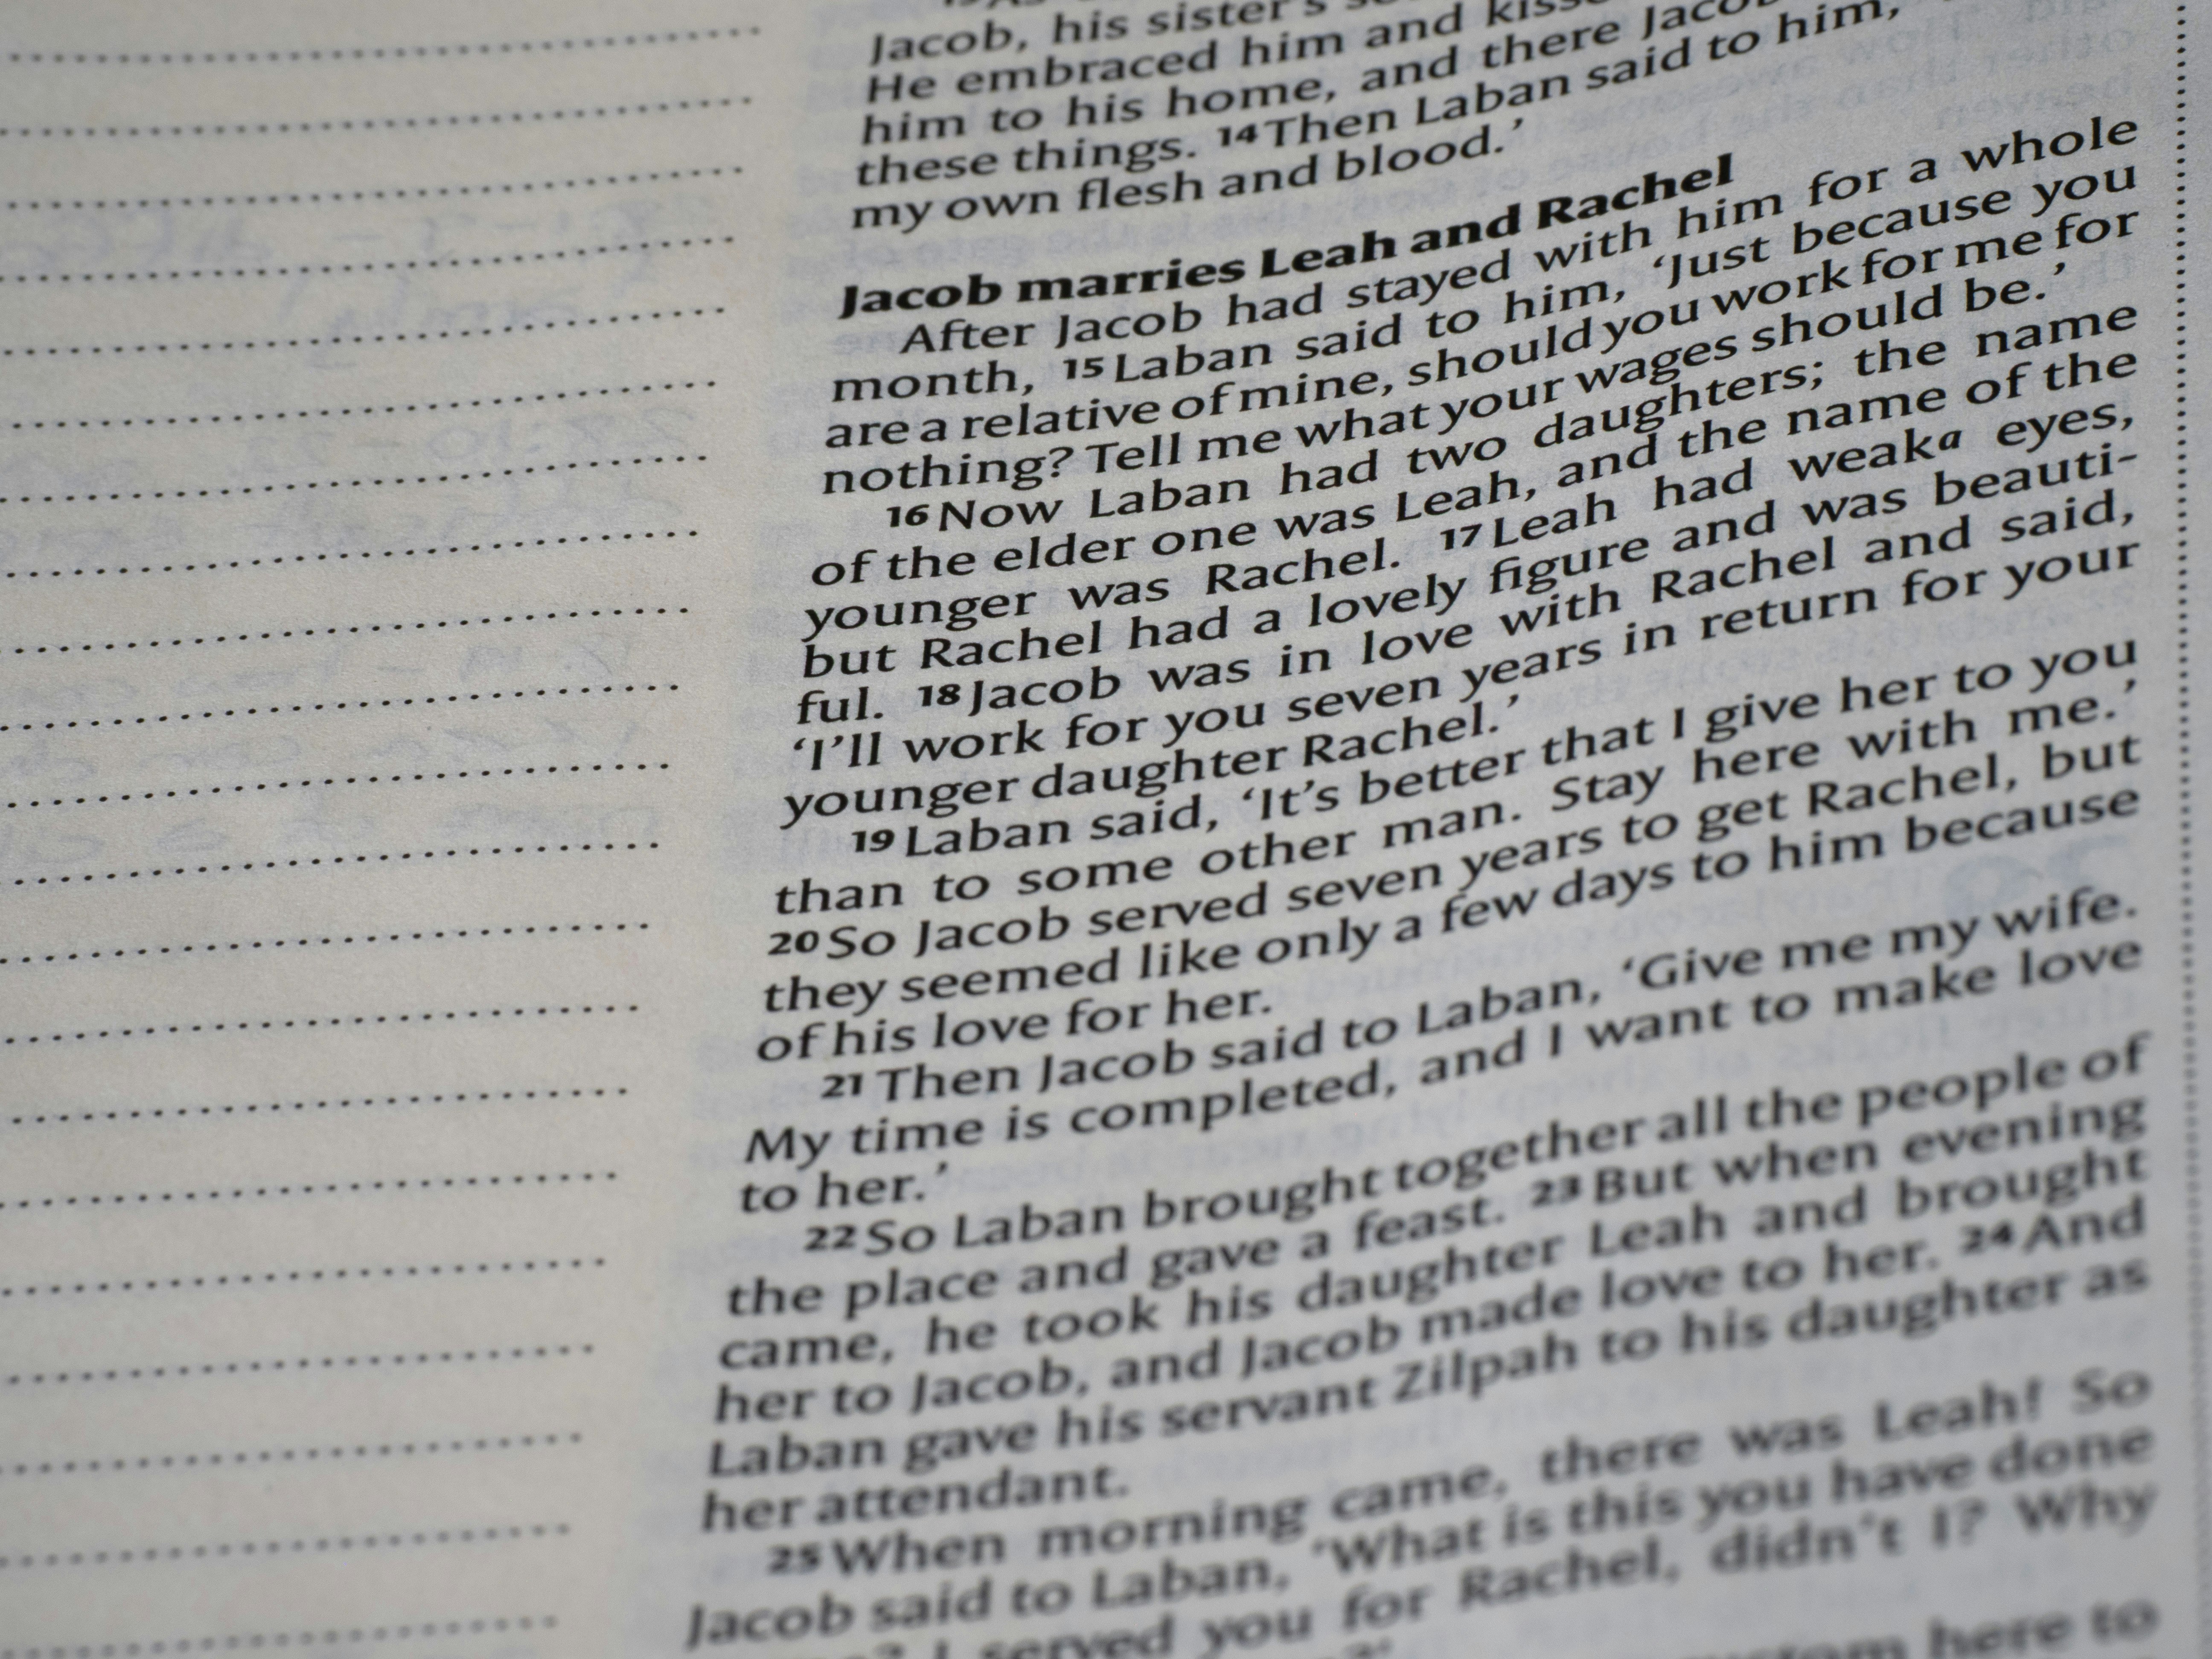 Jacob, his sister's
He embraced him and
him to his home, and there
these things. 14 Then Laban said to him,
my own flesh and blood.’
Jacob marries Leah and Rachel
After Jacob had stayed with him for a whole
month, 15 Laban said to him, ‘Just because you
are a relative of mine, should you work for me for
nothing? Tell me what your wages should be.’
16 Now Laban had two daughters; the name
of the elder one was Leah, and the name of the
younger was Rachel. 17 Leah had weak a eyes,
but Rachel had a lovely figure and was beauti-
ful. 18 Jacob was in love with Rachel and said,
‘I’ll work for you seven years in return for your
younger daughter Rachel.’
19 Laban said, ‘It’s better that I give her to you
than to some other man. Stay here with me.’
20 So Jacob served seven years to get Rachel, but
they seemed like only a few days to him because
of his love for her.
21 Then Jacob said to Laban, ‘Give me my wife.
My time is completed, and I want to make love
to her.’
22 So Laban brought together all the people of
the place and gave a feast. 23 But when evening
came, he took his daughter Leah and brought
her to Jacob, and Jacob made love to her. 24 And
Laban gave his servant Zilpah to his daughter as
her attendant.
25 When morning came, there was Leah! So
Jacob said to Laban, ‘What is this you have done
I served you for Rachel, didn’t I? Why
here to